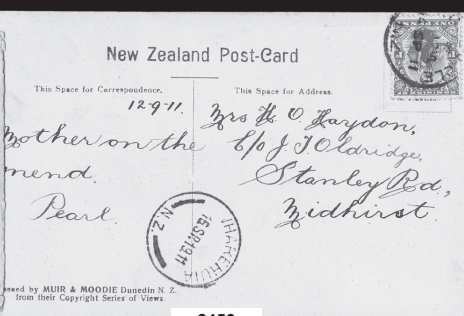 New Zealand Post-Card
This Space for Correspondence.
12-9-11.
Mother on the
mend.
Pearl.
This Space for Address.
Mrs H. O. Haydon,
C/o J. T Oldridge,
Stanley Rd,
Midhirst.
N.Z.
15SP1911
ssued by MUIR & MOODIE Dunedin N. Z.
from their Copyright Series of Views.